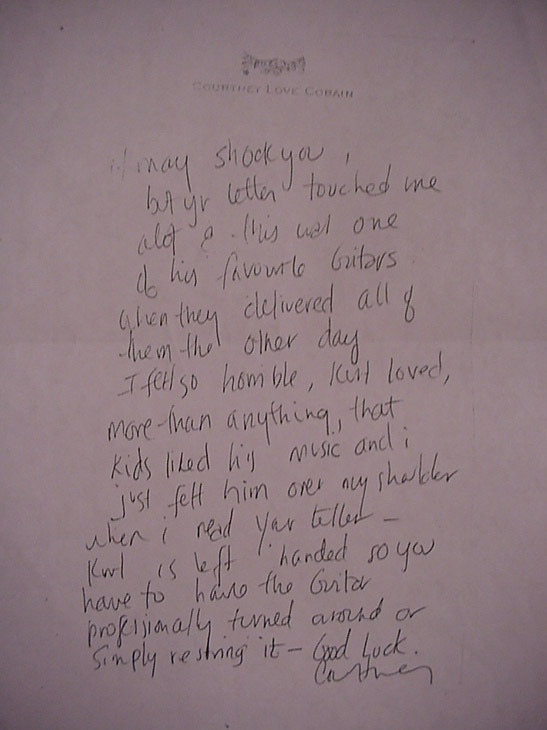 COURTNEY LOVE COBAIN
it may shock you,
but yr letter touched me
alot & this was one
of his favourite Guitars
when they delivered all of
them the other day
I felt so horrible, Kurt loved,
more than anything, that
kids liked his music and i
just felt him over my shoulder
when i read your letter –
Kurt is left handed so you
have to have the Guitar
profisionally turned around or
simply restring it – Good Luck.
Courtney